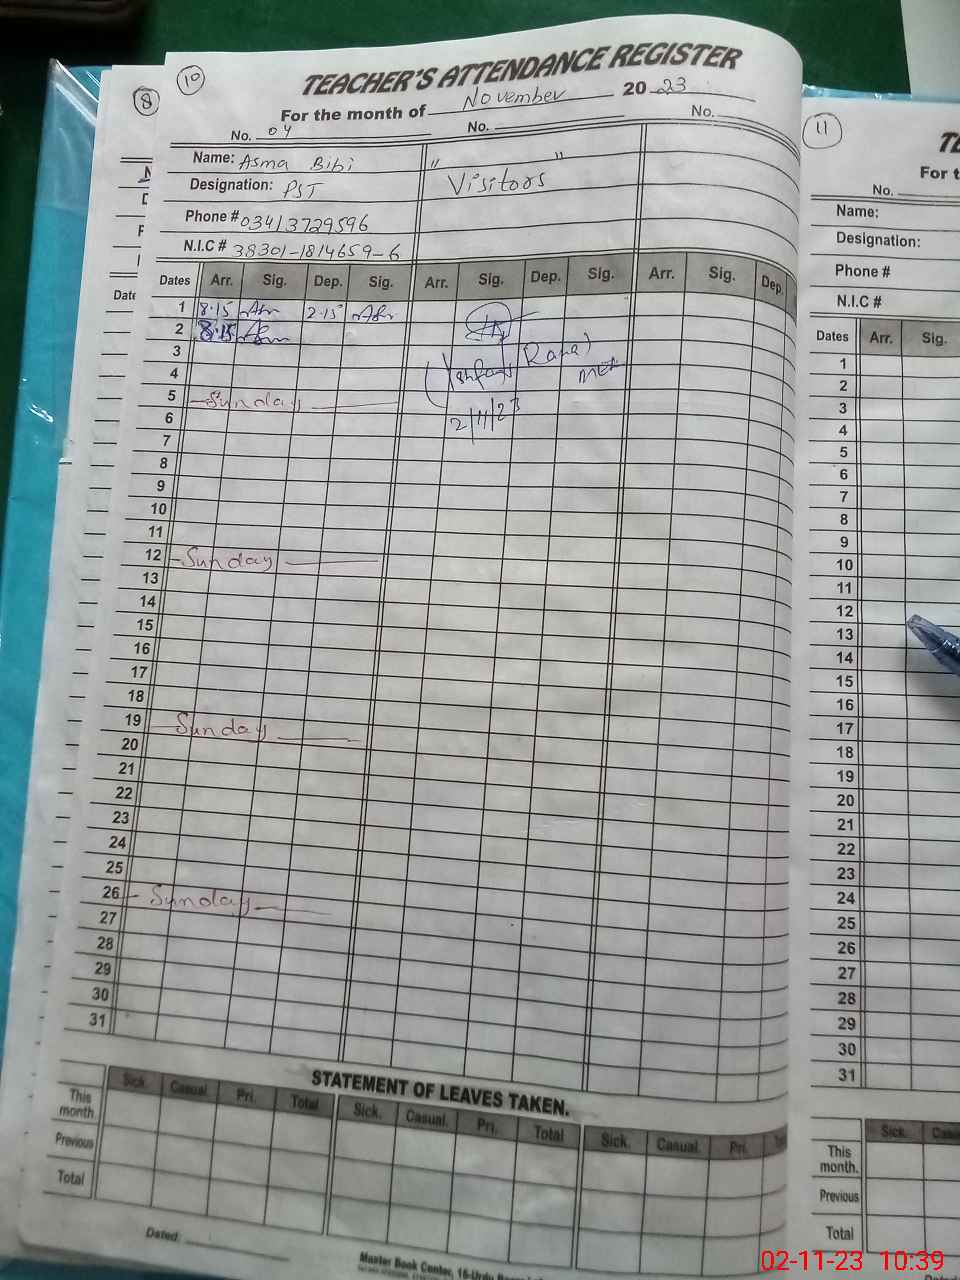 10
8
TEACHER'S ATTENDANCE REGISTER
For the month of November 2023
No. 04 No. No.
Name: Asma Bibi " "
Designation: PST Visitors
Phone # 03413729596
N.I.C # 38301-1814659-6
Dates Arr. Sig. Dep. Sig. Arr. Sig. Dep. Sig. Arr. Sig. Dep.
1 8.15 2.15
2 8.15
3 Rana)
4
5 Sunday
2/11/23
6
7
8
9
10
11
12 Sunday
13
14
15
16
17
18
19 Sunday
20
21
22
23
24
25
26 Sunday
27
28
29
30
31
STATEMENT OF LEAVES TAKEN.
Sick. Casual. Pri. Total Sick. Casual. Pri. Total Sick. Casual. Pri.
This month.
Previous
Total
Dated:
Master Book Center,
Date
11
For t
No.
Name:
Designation:
Phone #
N.I.C #
Dates Arr. Sig.
1
2
3
4
5
6
7
8
9
10
11
12
13
14
15
16
17
18
19
20
21
22
23
24
25
26
27
28
29
30
31
Sick.
This month.
Previous
Total
02-11-23 10:39